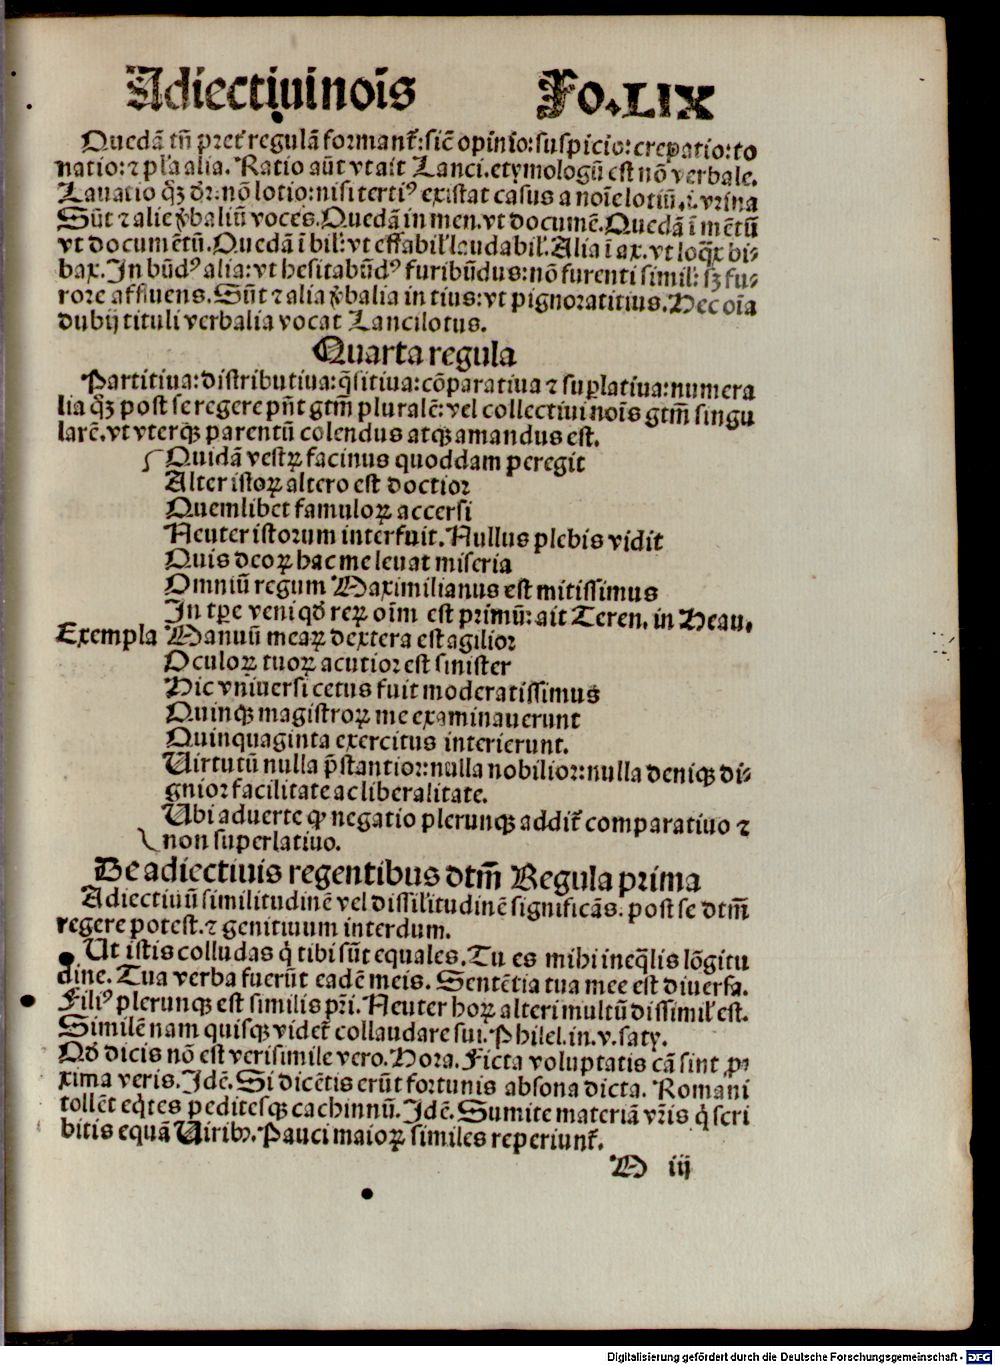 Adiectiui noīs Fo.LIX
Quedā tn̄ pret̕ regulā formant̕: sic̄ opinio: suspicio: crepatio: to
natio: ⁊ pl̕a alia. Ratio aūt vt ait Lanci. etymologū est nō verbale.
Lauatio qꝫ dr̄: nō lotio: nisi tertiꝰ existat casus a noīe lotiū .i. vrina
Sūt ⁊ alie v̕baliū voces. Quedā in men. vt documē. Quedā ī mētū
vt documētū. Quedā ī bil̕: vt effabil̕ laudabil̕. Alia ī ax. vt loq̄x bi⸗
bax. In būdꝰ alia: vt hesitabūdꝰ furibūdus: nō furenti simil̕: sꝫ fu⸗
rore affluens. Sūt ⁊ alia v̕balia in tius: vt pignoratitius. Hec oīa
dubij tituli verbalia vocat Lancilotus.
Quarta regula
Partitiua: distributiua: q̄sitiua: cōparatiua ⁊ suꝑlatiua: numera
lia qꝫ post se regere pn̄t gtm̄ pluralē: vel collectiui noīs gtm̄ singu
larē. vt vterqꝫ parentū colendus atqꝫ amandus est.
Quidā vestrꝝ facinus quoddam peregit
Alter istoꝝ altero est doctior
Quemlibet famuloꝝ accersi
Neuter istorum interfuit. Nullus plebis vidit
Quis deoꝝ hac me leuat miseria
Omniū regum Maximilianus est mitissimus
In tꝑe veni qd̕ reꝝ oīm est primū: ait Teren. in Heau.
Exempla Manuū meaꝝ dextera est agilior
Oculoꝝ tuoꝝ acutior est sinister
Hic vniuersi cetus fuit moderatissimus
Quinqꝫ magistroꝝ me examinauerunt
Quinquaginta exercitus interierunt.
Uirtutū nulla p̄stantior: nulla nobilior: nulla deniqꝫ di⸗
gnior facilitate ac liberalitate.
Ubi aduerte ꝙ negatio plerunqꝫ addit̕ comparatiuo ⁊
non superlatiuo.
De adiectiuis regentibus dtm̄ Regula prima
Adiectiuū similitudinē vel dissilitudinē significās. post se dtm̄
regere potest. ⁊ genitiuum interdum.
Ut istis colludas q̇ tibi sūt equales. Tu es mihi ineq̄lis lōgitu
dine. Tua verba fuerūt eadē meis. Sentētia tua mee est diuersa.
Filiꝰ plerunqꝫ est similis pr̄i. Neuter hoꝝ alteri multū dissimil̕ est.
Similē nam quisqꝫ videt̕ collaudare sui. Philel. in. v. saty.
Qd̕ dicis nō est verisimile vero. Hora. Ficta voluptatis cā sint ꝓ⸗
xima veris. Idē. Si dicētis erūt fortunis absona dicta. Romani
tollēt eq̇tes peditesqꝫ cachinnū. Idē. Sumite materiā vr̄is q̇ scri
bitis equā Uiribꝫ. Pauci maioꝝ similes reperiunt̕.
M iij
Digitalisierung gefördert durch die Deutsche Forschungsgemeinschaft - DFG